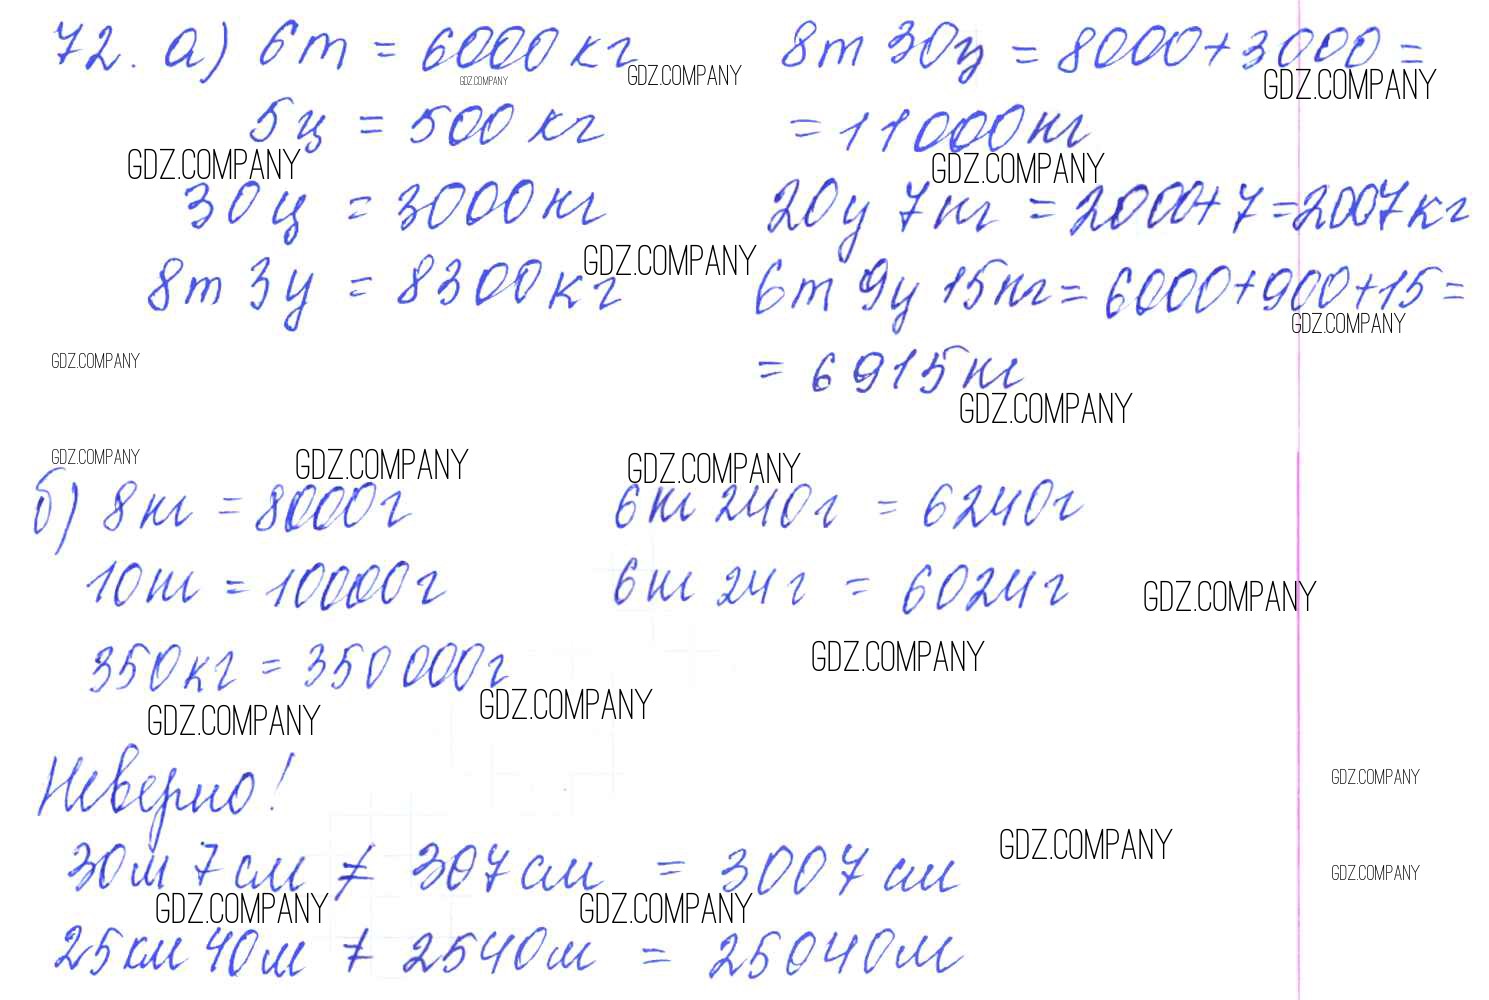 72. а) 6т = 6000 кг 8т 30ц = 8000+3000 =
GDZ.COMPANY GDZ.COMPANY GDZ.COMPANY
5ц = 500 кг = 11000 кг
GDZ.COMPANY GDZ.COMPANY
30ц = 3000 кг 20ц 7кг = 2000+7=2007кг
GDZ.COMPANY
8т 3ц = 8300 кг 6т 9ц 15кг = 6000+900+15 =
GDZ.COMPANY
GDZ.COMPANY
= 6915кг
GDZ.COMPANY
GDZ.COMPANY GDZ.COMPANY GDZ.COMPANY
б) 8кг = 8000г 6кг 240г = 6240г
10кг = 10000г 6кг 24г = 6024г
GDZ.COMPANY
350кг = 350 000г
GDZ.COMPANY
GDZ.COMPANY GDZ.COMPANY
Неверно!
GDZ.COMPANY
GDZ.COMPANY
30м 7см ≠ 307см = 3007 см
GDZ.COMPANY
GDZ.COMPANY GDZ.COMPANY
25км 40м ≠ 2540м = 25040м